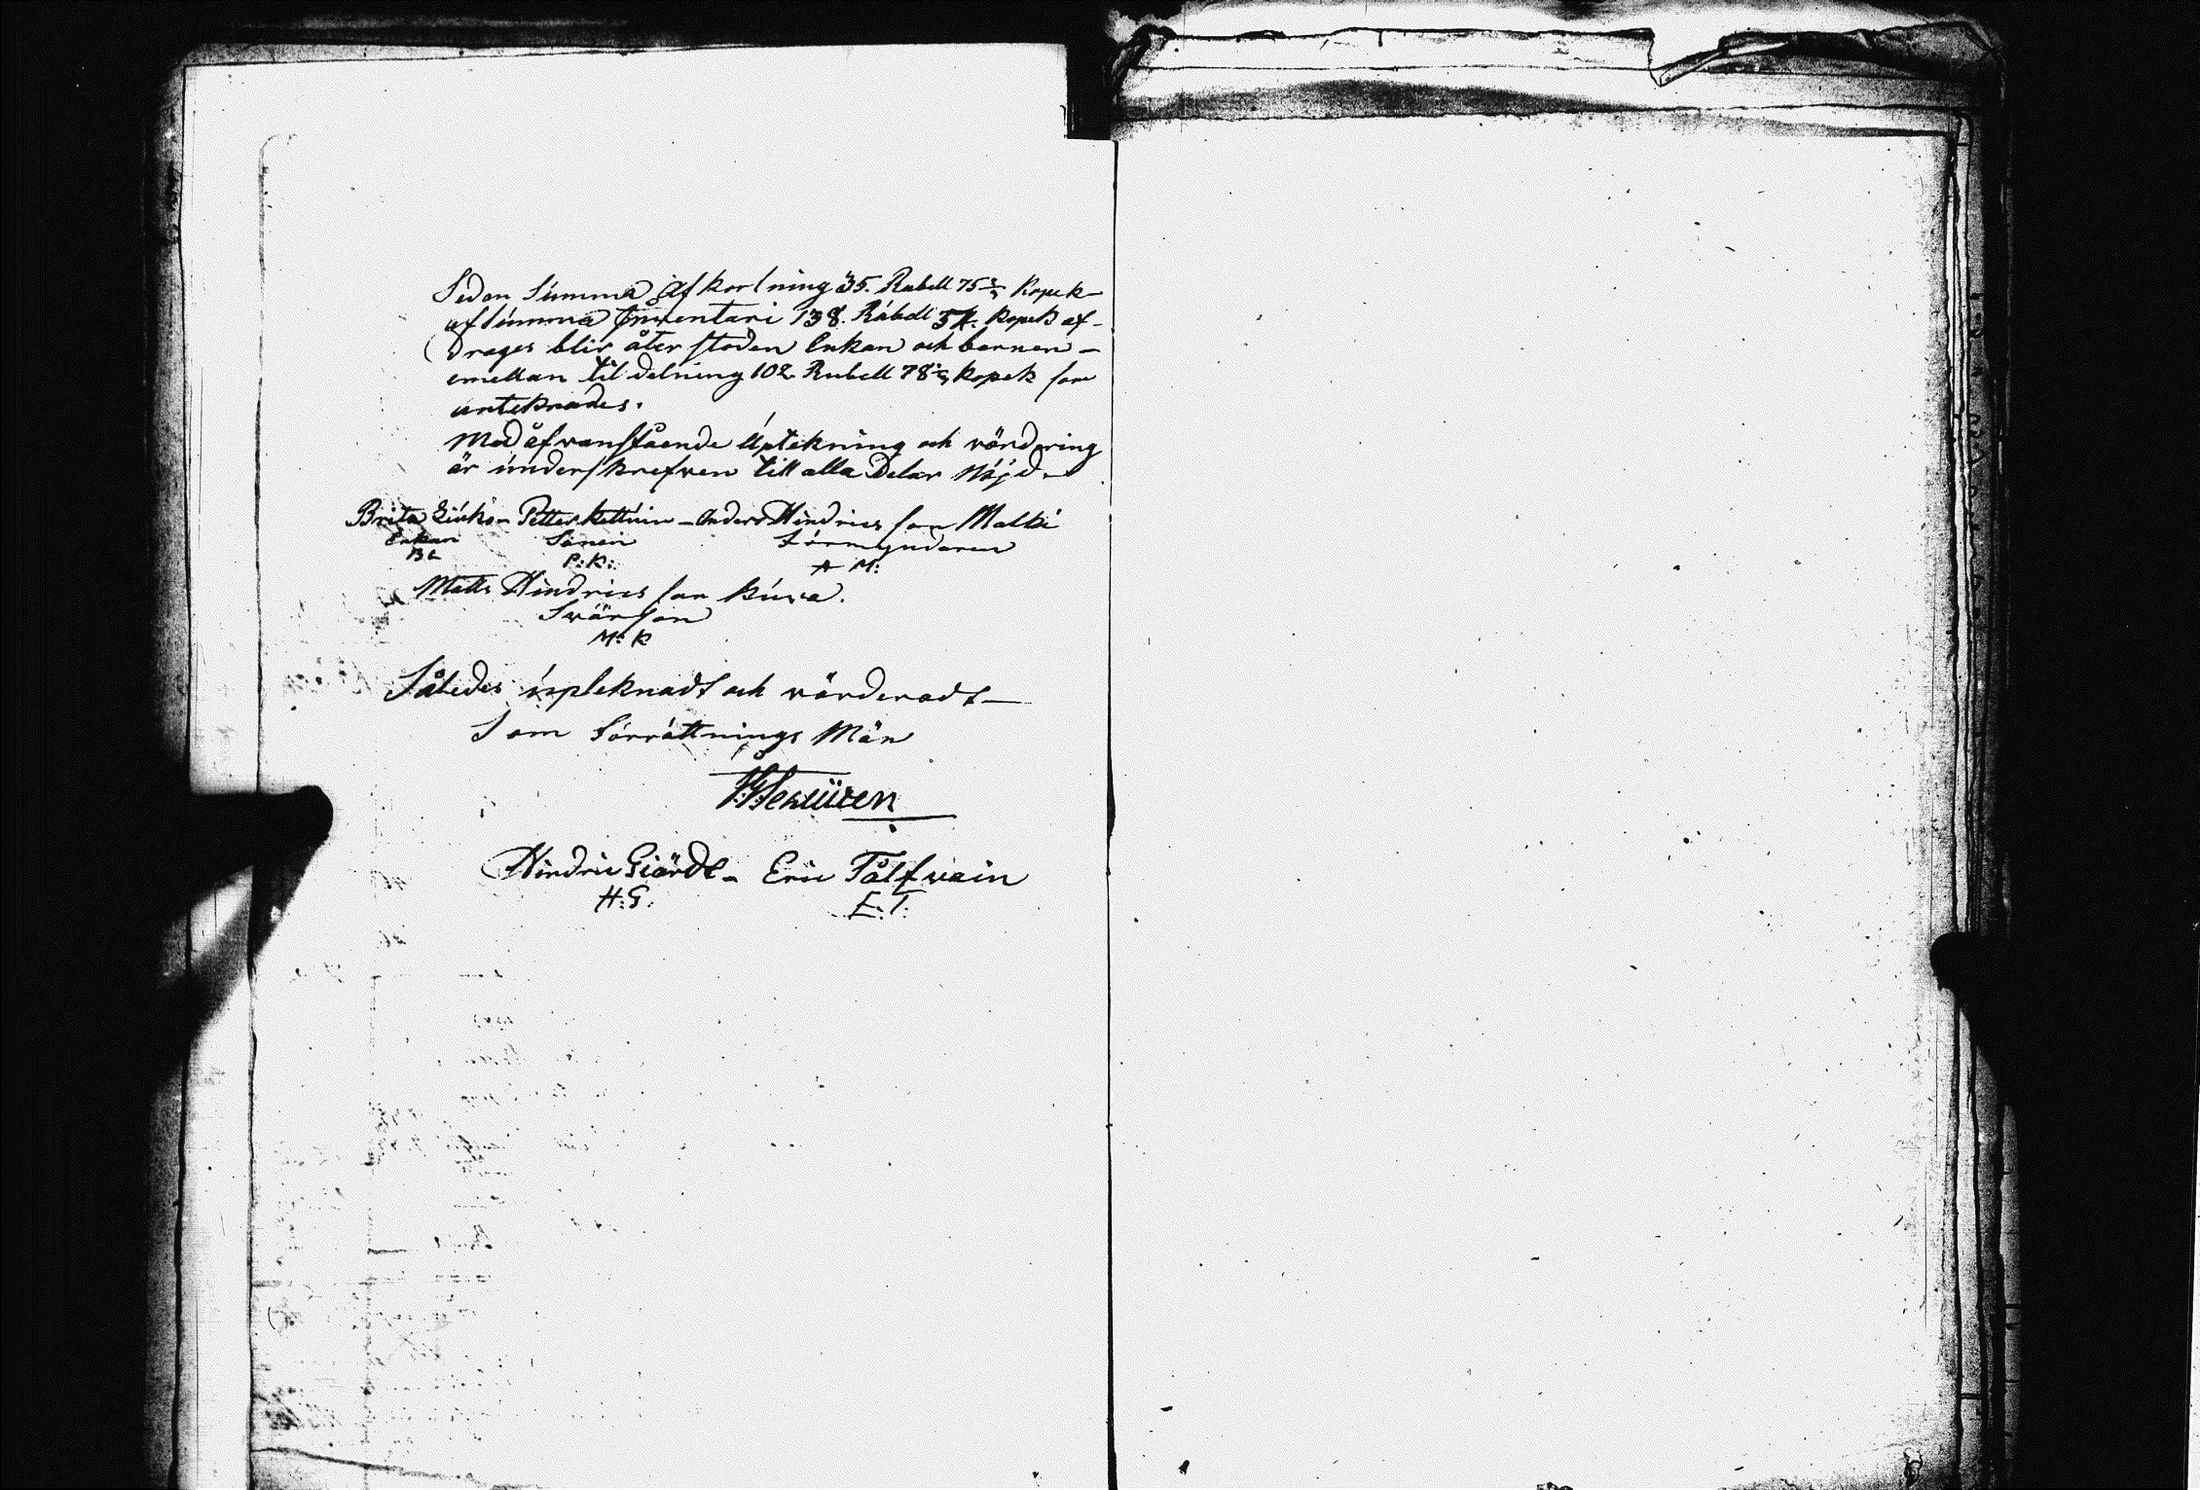 Sedan Summa Afkortning 35. Rubell 75 3/7 Kopek
af Summa Inventari 138. Rubell 54. kopek af-
drages blir återstoden Enkan och barnen
emellan til delning 102 Rubell 78 4/7 kopek som
antecknades.
Med åfvanstående Uptekning och värdering
är underskrefven till alla Delar Nöjd
Brita Petter Kettuin Anders Hindricsson Malki
Enkan Sonen Förmyndaren
BL P:K: A M:
Matts Hindricsson Kuva.
Svärson
M: K
Således upteknadt och värderadt
Som Förrättnings Män
Hindric Giärdt Eric Tålfvain
H:G: E:T: